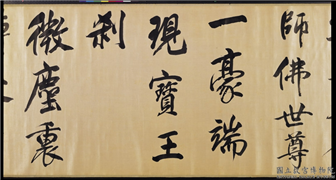 師佛世尊
一豪端
現寶王
刹
微塵裏
國立故宮博物院